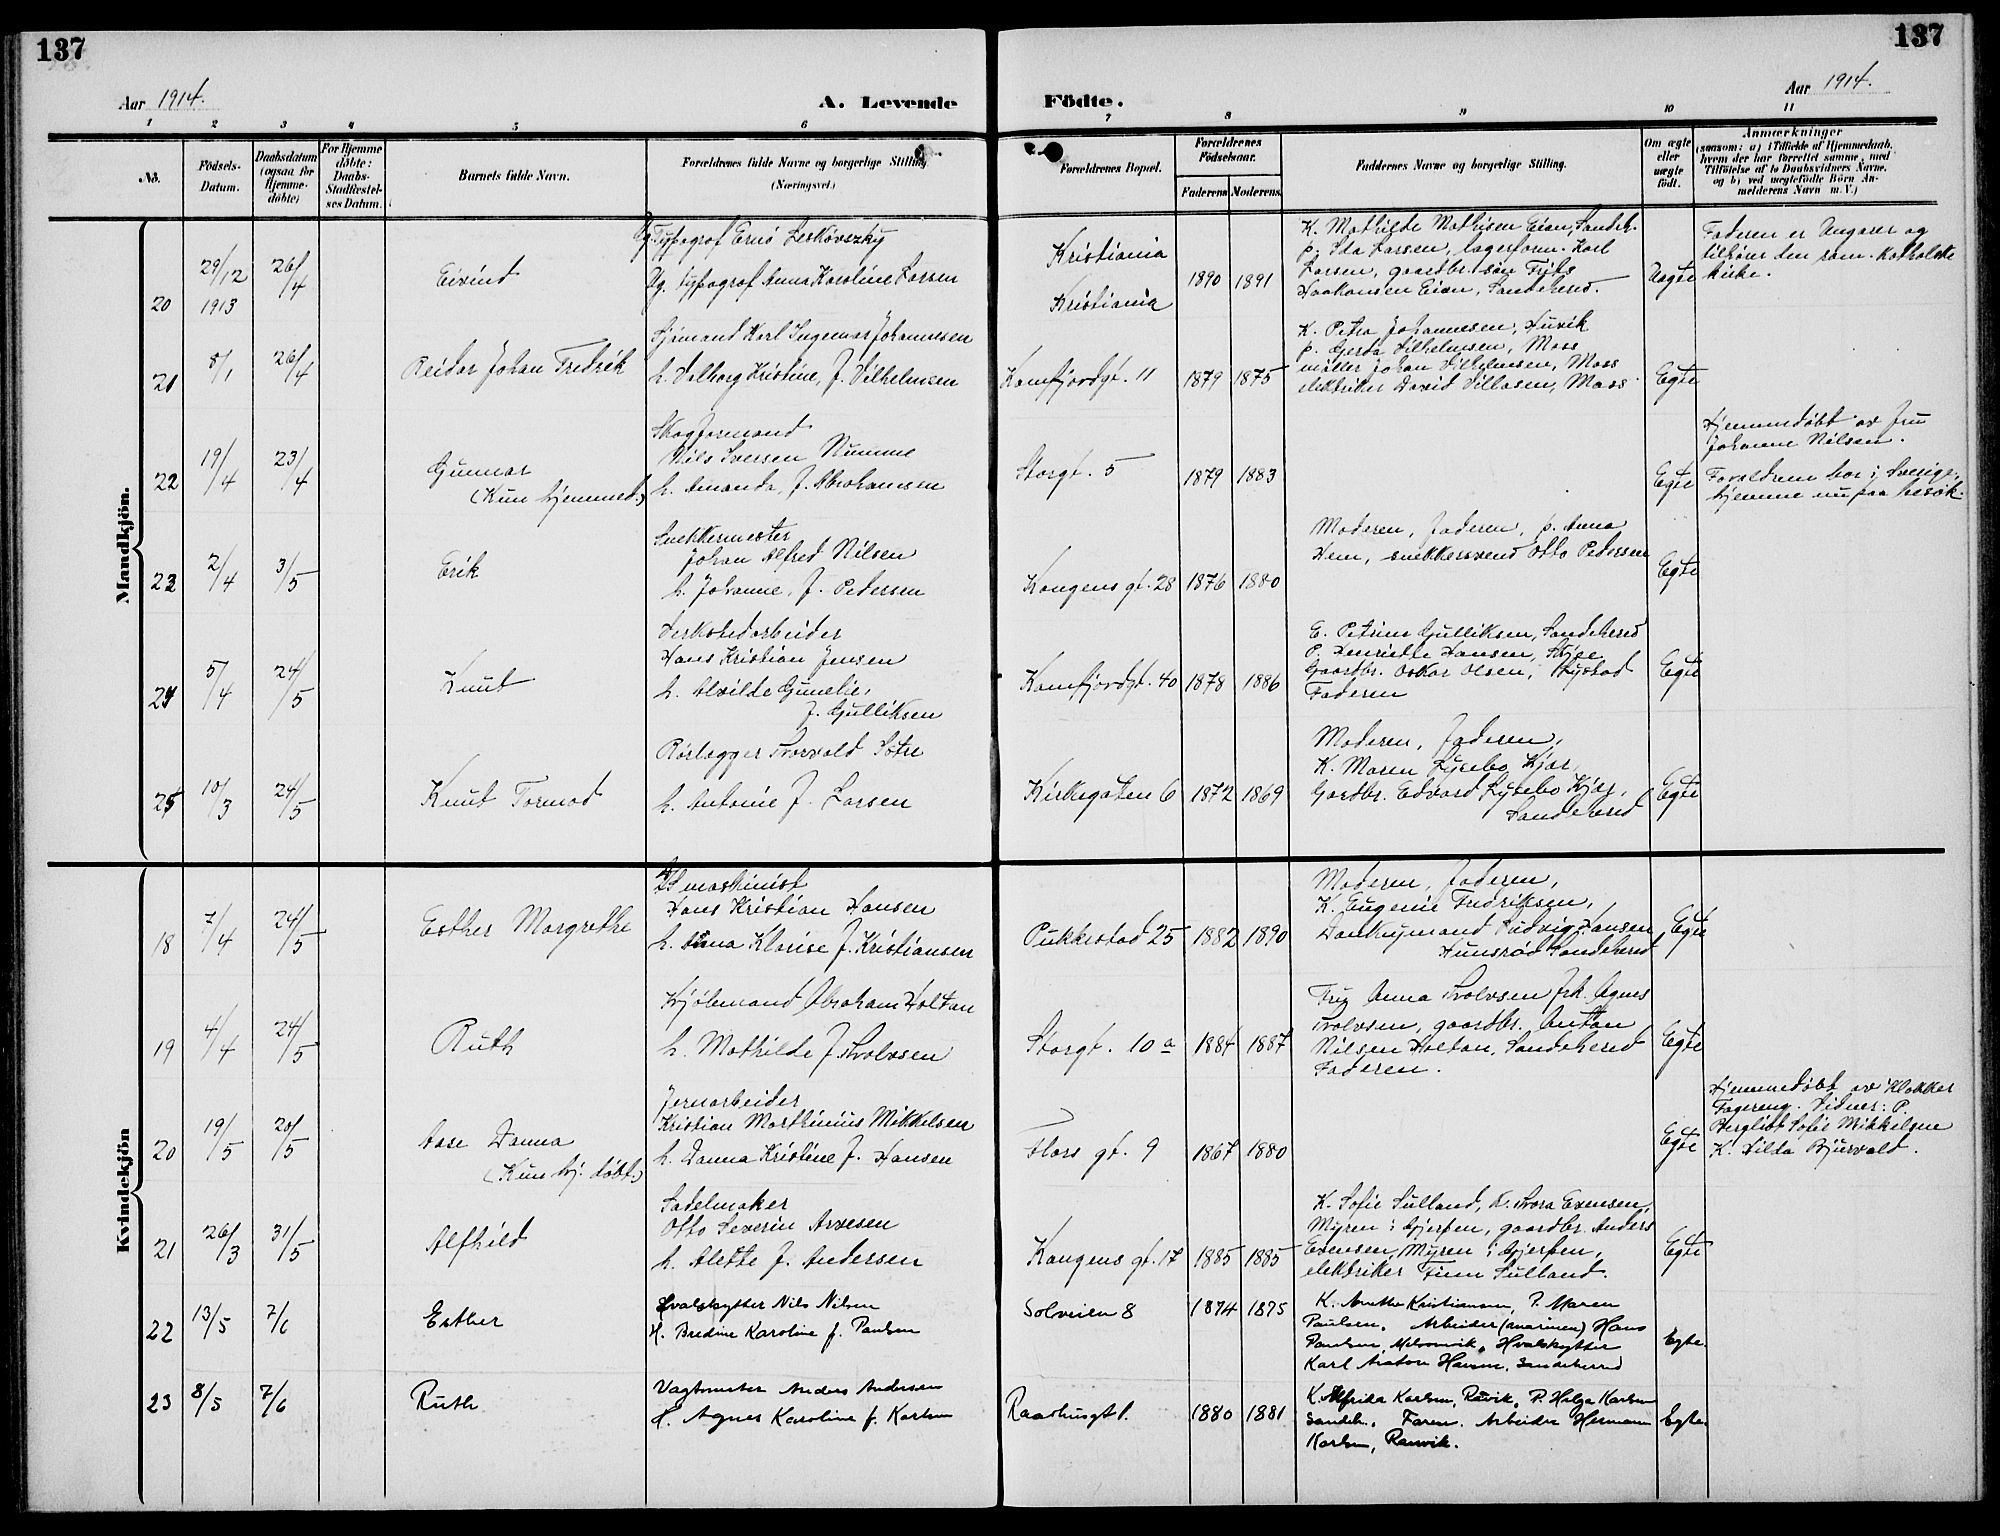 137
137
Aar 1914.
A. Levende
Födte.
Aar 1914.
1 2 3 4 5 6 7 8 9 10 11
No.
Födsels-Datum.
Daabsdatum (ogsaa for Hjemmedøbte)
For Hjemmedøbte: Daabs-Stadfæstelses Datum.
Barnets fulde Navn.
Forældrenes fulde Navne og borgerlige Stilling
(Næringsvei.)
Forældrenes Bopæl.
Forældrenes Födselsaar.
Faderens
Moderens
Faddernes Navne og borgerlige Stilling.
Om ægte eller uægte født.
Anmærkninger
(saasom: a) i Tilfælde af Hjemmedaab, hvem der har forrettet samme, med Tilföielse af to Daabsvidners Navne, og b) ved uægtefödte Börn Anmelderens Navn m. V.)
Mandkjön.
20
29/12 1913
26/4
Eivind
Ug. Typograf Ernö Leskovszky
Ug. typograf Anna Karoline Larsen
Kristiania
Kristiania
1890 1891
K. Mathilde Mathisen Eian, Sandeh.
p. Ida Larsen, lagerform. Karl
Larsen, gaardbr. søn Frits
Haakonsen Eian, Sandeherred.
Uegte
Faderen er Ungarer og
tilhører den rom. katholske
kirke.
21
8/1
26/4
Reidar Johan Fredrik
Sjømand Karl Ingemar Johannesen
h. Valborg Kristine, f. Vilhelmsen
Kamfjordgt. 11
1879 1875
K. Petra Johannesen, Huvik
p. Gerda Vilhelmsen, Moss
møller Johan Vilhelmsen, Moss
elektriker David Villasen, Moss
Egte
22
19/4
23/4
Gunnar
(Kun hjemmed.)
Skogformand
Nils Iversen Numme
h. Amanda, f. Abrahamsen
Storgt. 5
1879 1883
Egte
Hjemmedøbt av fru
Johanne Nilsen.
Forældrene bor i Sverige,
hjemme nu paa besøk.
23
2/4
3/5
Erik
Snekkermester
Johan Alfred Nilsen
h. Johanne, f. Pedersen
Kongens gt. 28
1876 1880
Moderen, faderen, p. Anna
Hem, snekkersvend Otto Pedersen
Egte
24
5/4
24/5
Knut
Verkstedarbeider
Hans Kristian Jensen
h. Alvilde Gunelie,
f. Gulliksen
Kamfjordgt. 40
1878 1886
E. Petrine Gulliksen, Sandeherred
P. Henriette Hansen,
Gaardbr. Oskar Olsen,
Faderen
Egte
25
10/3
24/5
Knut Tormod
Rørlægger Thorvald Sætre
h. Antonie f. Larsen
Kirkegaten 6
1872 1869
Moderen, faderen,
K. Maren Lysebo Kjær,
Gaardbr. Edvard Lysebo Kjær,
Sandeherred
Egte
Kvindekjön
18
7/4
24/5
Esther Margrethe
maskinist
Hans Kristian Hansen
h. Anna Klarise f. Kristiansen
Pukkestad 25
1882 1890
Moderen, faderen,
K. Eugenie Fredriksen,
Dankeymand Ludvig Hansen
Hunsrød Sandeherred
Egte
19
4/4
24/5
Ruth
Kjøbmand Abraham Holtan
h. Mathilde f. Tholvsen
Storgt. 10 a
1884 1887
Fru Anna Tholvsen frk. Agnes
Tholvsen, gaardbr. Anton
Nilsen Holtan, Sandeherred
Faderen.
Egte
20
19/5
20/5
Aase Danna
(Kun hj. døbt.)
Jernarbeider
Kristian Marthinius Mikkelsen
h. Danna Kristine f. Hansen
Thors gt. 9
1867 1880
Egte
Hjemmedøbt av klokker
Fagereng. Vidner: P.
Bergliot Sofie Mikkelsen
K. Hilda Bjurvald.
21
26/3
31/5
Alfhild
Sadelmaker
Otto Severin Arvesen
h. Alette f. Andersen
Kongens gt. 17
1885 1885
K. Sofie Sulland, K. Thora Evensen,
Myren i Gjerpen, gaardbr. Anders
Evensen, Myren i Gjerpen,
elektriker Finn Sulland.
Egte
22
13/5
7/6
Esther
Hvalskytter Nils Nilsen
H. Bredine Karoline f. Paulsen
Solveien 8
1874 1875
K. Anette Kristiansen, P. Maren
Paulsen. Arbeider Hans
Paulsen, Melsomvik, Hvalskytter
Karl Anton Hansen, Sandeherred
Egte.
23
8/5
7/6
Ruth
Vagtmester Anders Andersen
H. Agnes Karoline f. Karlsen
Raadhusgt 1.
1880 1881
K. Alfrida Karlsen, Ranvik, P. Helga Karlsen
Sandeh., Faren. Arbeider Hermann
Karlsen, Ranvik.
Egte.